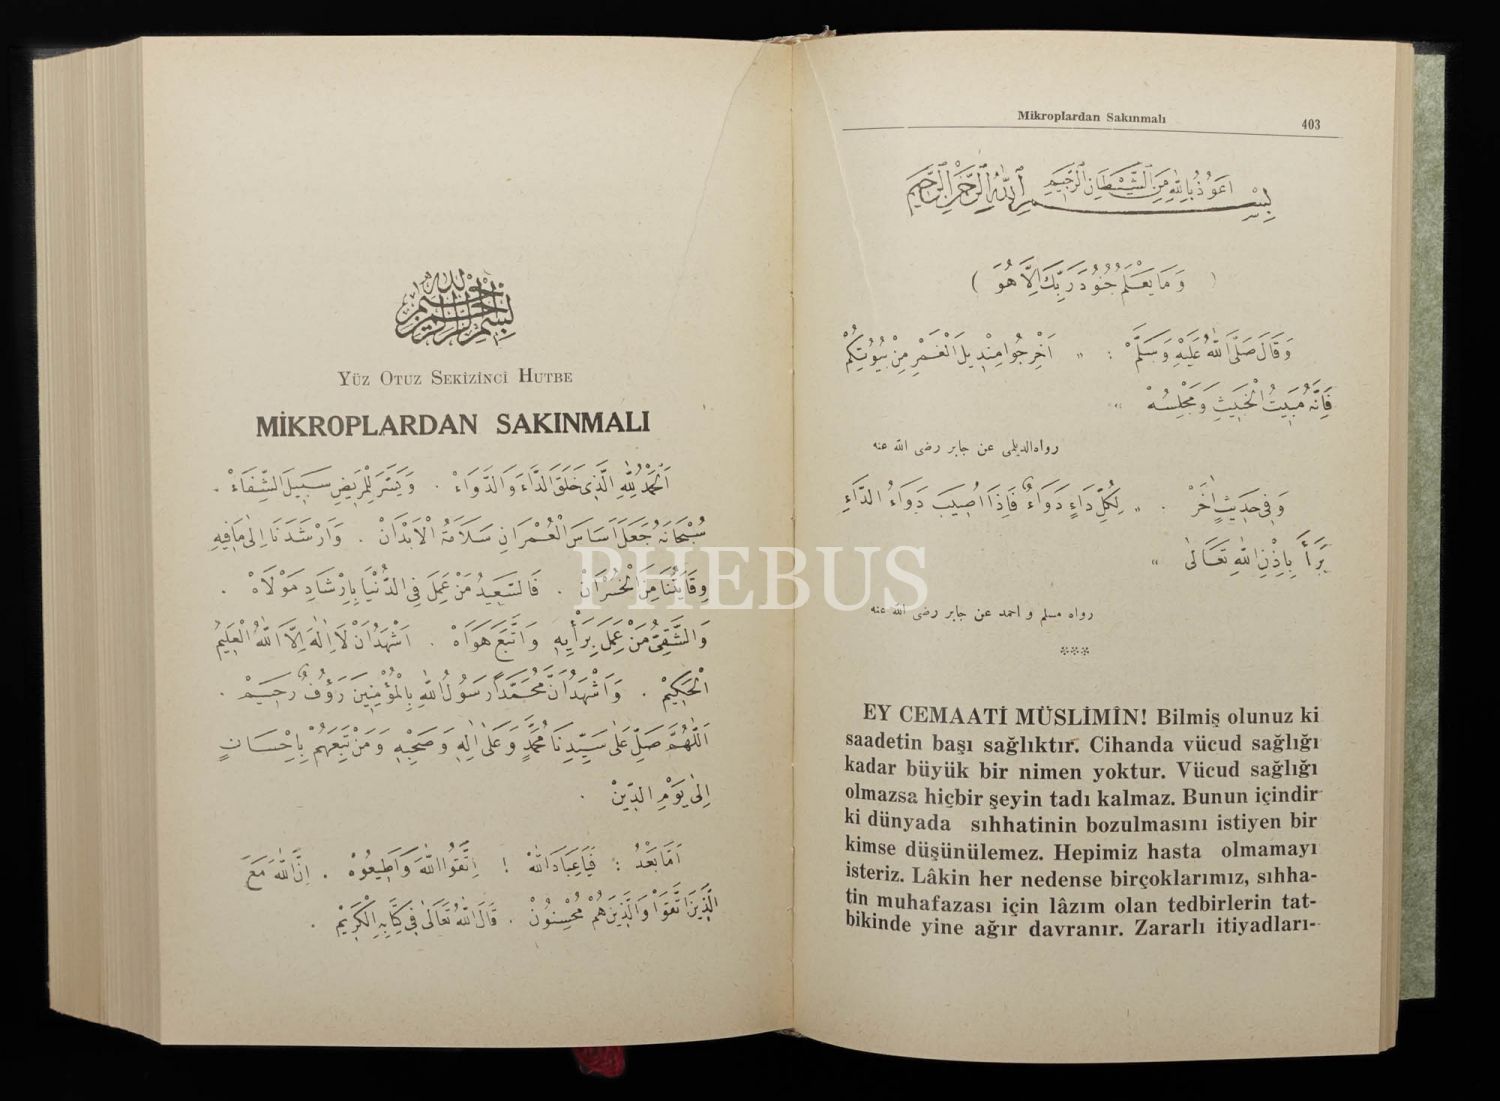 بسم الله الرحمن الرحيم
YÜZ OTUZ SEKİZİNCİ HUTBE
MİKROPLARDAN SAKINMALI
اَلْحَمْدُ لِلّٰهِ الَّذِى خَلَقَ الدَّاءَ وَالدَّوَاءْ . وَيَسَّرَ لِلْمَرِيضِ سَبِيلَ الشِّفَاءْ .
سُبْحَانَهُ جَعَلَ اَسَاسَ الْعُمْرَانِ سَلَامَةُ الْاَبْدَانْ . وَاَرْشَدَنَا اِلٰى مَافِيهِ
وِقَايَتُنَا مِنَ الْخُسْرَانْ . فَالسَّعِيدُ مَنْ عَمِلَ فِى الدُّنْيَا بِاِرْشَادِ مَوْلَاهْ .
وَالشَّقِىُّ مَنْ عَمِلَ بِرَأْيِهِ وَاتَّبَعَ هَوَاهْ . اَشْهَدُ اَنْ لَا اِلٰهَ اِلَّا اللّٰهُ الْعَلِيمُ
الْحَكِيمْ . وَاَشْهَدُ اَنَّ مُحَمَّدًا رَسُولُ اللّٰهِ بِالْمُؤْمِنِينَ رَؤُفٌ رَحِيمْ .
اَللّٰهُمَّ صَلِّ عَلٰى سَيِّدِنَا مُحَمَّدٍ وَعَلٰى اٰلِهِ وَصَحْبِهِ وَمَنْ تَبِعَهُمْ بِاِحْسَانٍ
اِلٰى يَوْمِ الدِّينْ .
اَمَّا بَعْدُ : فَيَا عِبَادَ اللّٰهْ ! اِتَّقُوا اللّٰهَ وَاَطِيعُوهْ . اِنَّ اللّٰهَ مَعَ
الَّذِينَ اتَّقَوْا وَالَّذِينَ هُمْ مُحْسِنُونْ . قَالَ اللّٰهُ تَعَالٰى فِى كِتَابِهِ الْكَرِيمْ .
PHEBUS
Mikroplardan Sakınmalı 403
اَعُوذُ بِاللّٰهِ مِنَ الشَّيْطَانِ الرَّجِيمِ
بِسْمِ اللّٰهِ الرَّحْمٰنِ الرَّحِيمِ
( وَمَا يَعْلَمُ جُنُودَ رَبِّكَ اِلَّا هُوَ )
وَقَالَ صَلَّى اللّٰهُ عَلَيْهِ وَسَلَّمْ : « اَخْرِجُوا مِنْدِيلَ الْغَمْرِ مِنْ بُيُوتِكُمْ
فَاِنَّهُ مَبِيتُ الْخَبِيثِ وَمَجْلِسُهْ »
رواه الديلمى عن جابر رضى الله عنه
وَفِى حَدِيثٍ اٰخَرْ . « لِكُلِّ دَاءٍ دَوَاءٌ فَاِذَا اُصِيبَ دَوَاءُ الدَّاءِ
بَرَأَ بِاِذْنِ اللّٰهِ تَعَالٰى »
رواه مسلم و احمد عن جابر رضى الله عنه
***
EY CEMAATİ MÜSLİMİN! Bilmiş olunuz ki
saadetin başı sağlıktır. Cihanda vücud sağlığı
kadar büyük bir nimen yoktur. Vücud sağlığı
olmazsa hiçbir şeyin tadı kalmaz. Bunun içindir
ki dünyada sıhhatinin bozulmasını istiyen bir
kimse düşünülemez. Hepimiz hasta olmamayı
isteriz. Lâkin her nedense birçoklarımız, sıhha-
tin muhafazası için lâzım olan tedbirlerin tat-
bikinde yine ağır davranır. Zararlı itiyadları-